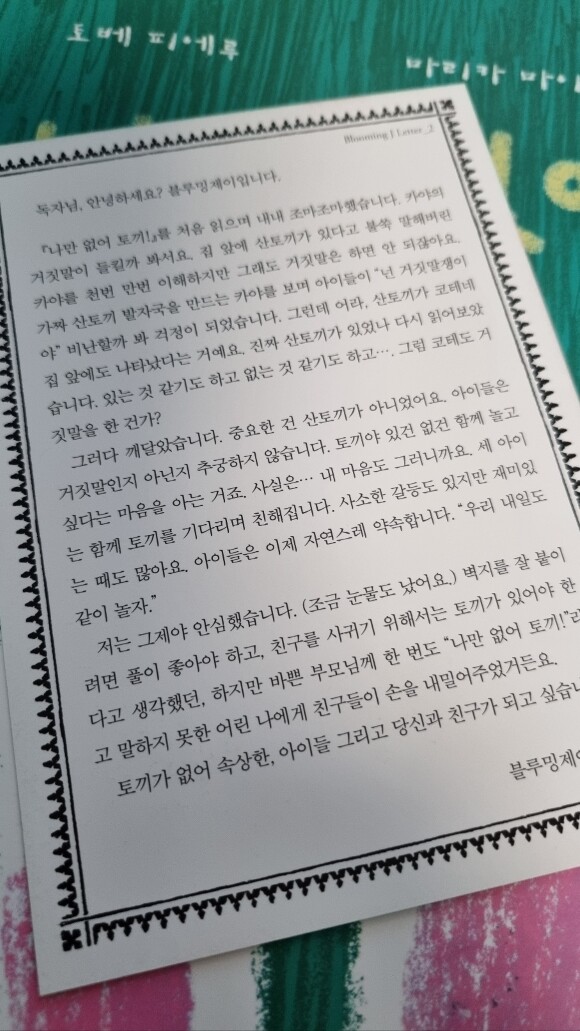 토베 피에루
마리카 마이
Blooming J Letter_2
독자님, 안녕하세요? 블루밍제이입니다.
『나만 없어 토끼!』를 처음 읽으며 내내 조마조마했습니다. 카야의
거짓말이 들킬까 봐서요. 집 앞에 산토끼가 있다고 불쑥 말해버린
카야를 천번 만번 이해하지만 그래도 거짓말은 하면 안 되잖아요.
가짜 산토끼 발자국을 만드는 카야를 보며 아이들이 “넌 거짓말쟁이
야” 비난할까 봐 걱정이 되었습니다. 그런데 어라, 산토끼가 코테네
집 앞에도 나타났다는 거예요. 진짜 산토끼가 있었나 다시 읽어보았
습니다. 있는 것 같기도 하고 없는 것 같기도 하고…. 그럼 코테도 거
짓말을 한 건가?
그러다 깨달았습니다. 중요한 건 산토끼가 아니었어요. 아이들은
거짓말인지 아닌지 추궁하지 않습니다. 토끼야 있건 없건 함께 놀고
싶다는 마음을 아는 거죠. 사실은… 내 마음도 그러니까요. 세 아이
는 함께 토끼를 기다리며 친해집니다. 사소한 갈등도 있지만 재미있
는 때도 많아요. 아이들은 이제 자연스레 약속합니다. “우리 내일도
같이 놀자.”
저는 그제야 안심했습니다. (조금 눈물도 났어요.) 벽지를 잘 붙이
려면 풀이 좋아야 하고, 친구를 사귀기 위해서는 토끼가 있어야 한
다고 생각했던, 하지만 바쁜 부모님께 한 번도 “나만 없어 토끼!”라
고 말하지 못한 어린 나에게 친구들이 손을 내밀어주었거든요.
토끼가 없어 속상한, 아이들 그리고 당신과 친구가 되고 싶습니
블루밍제이